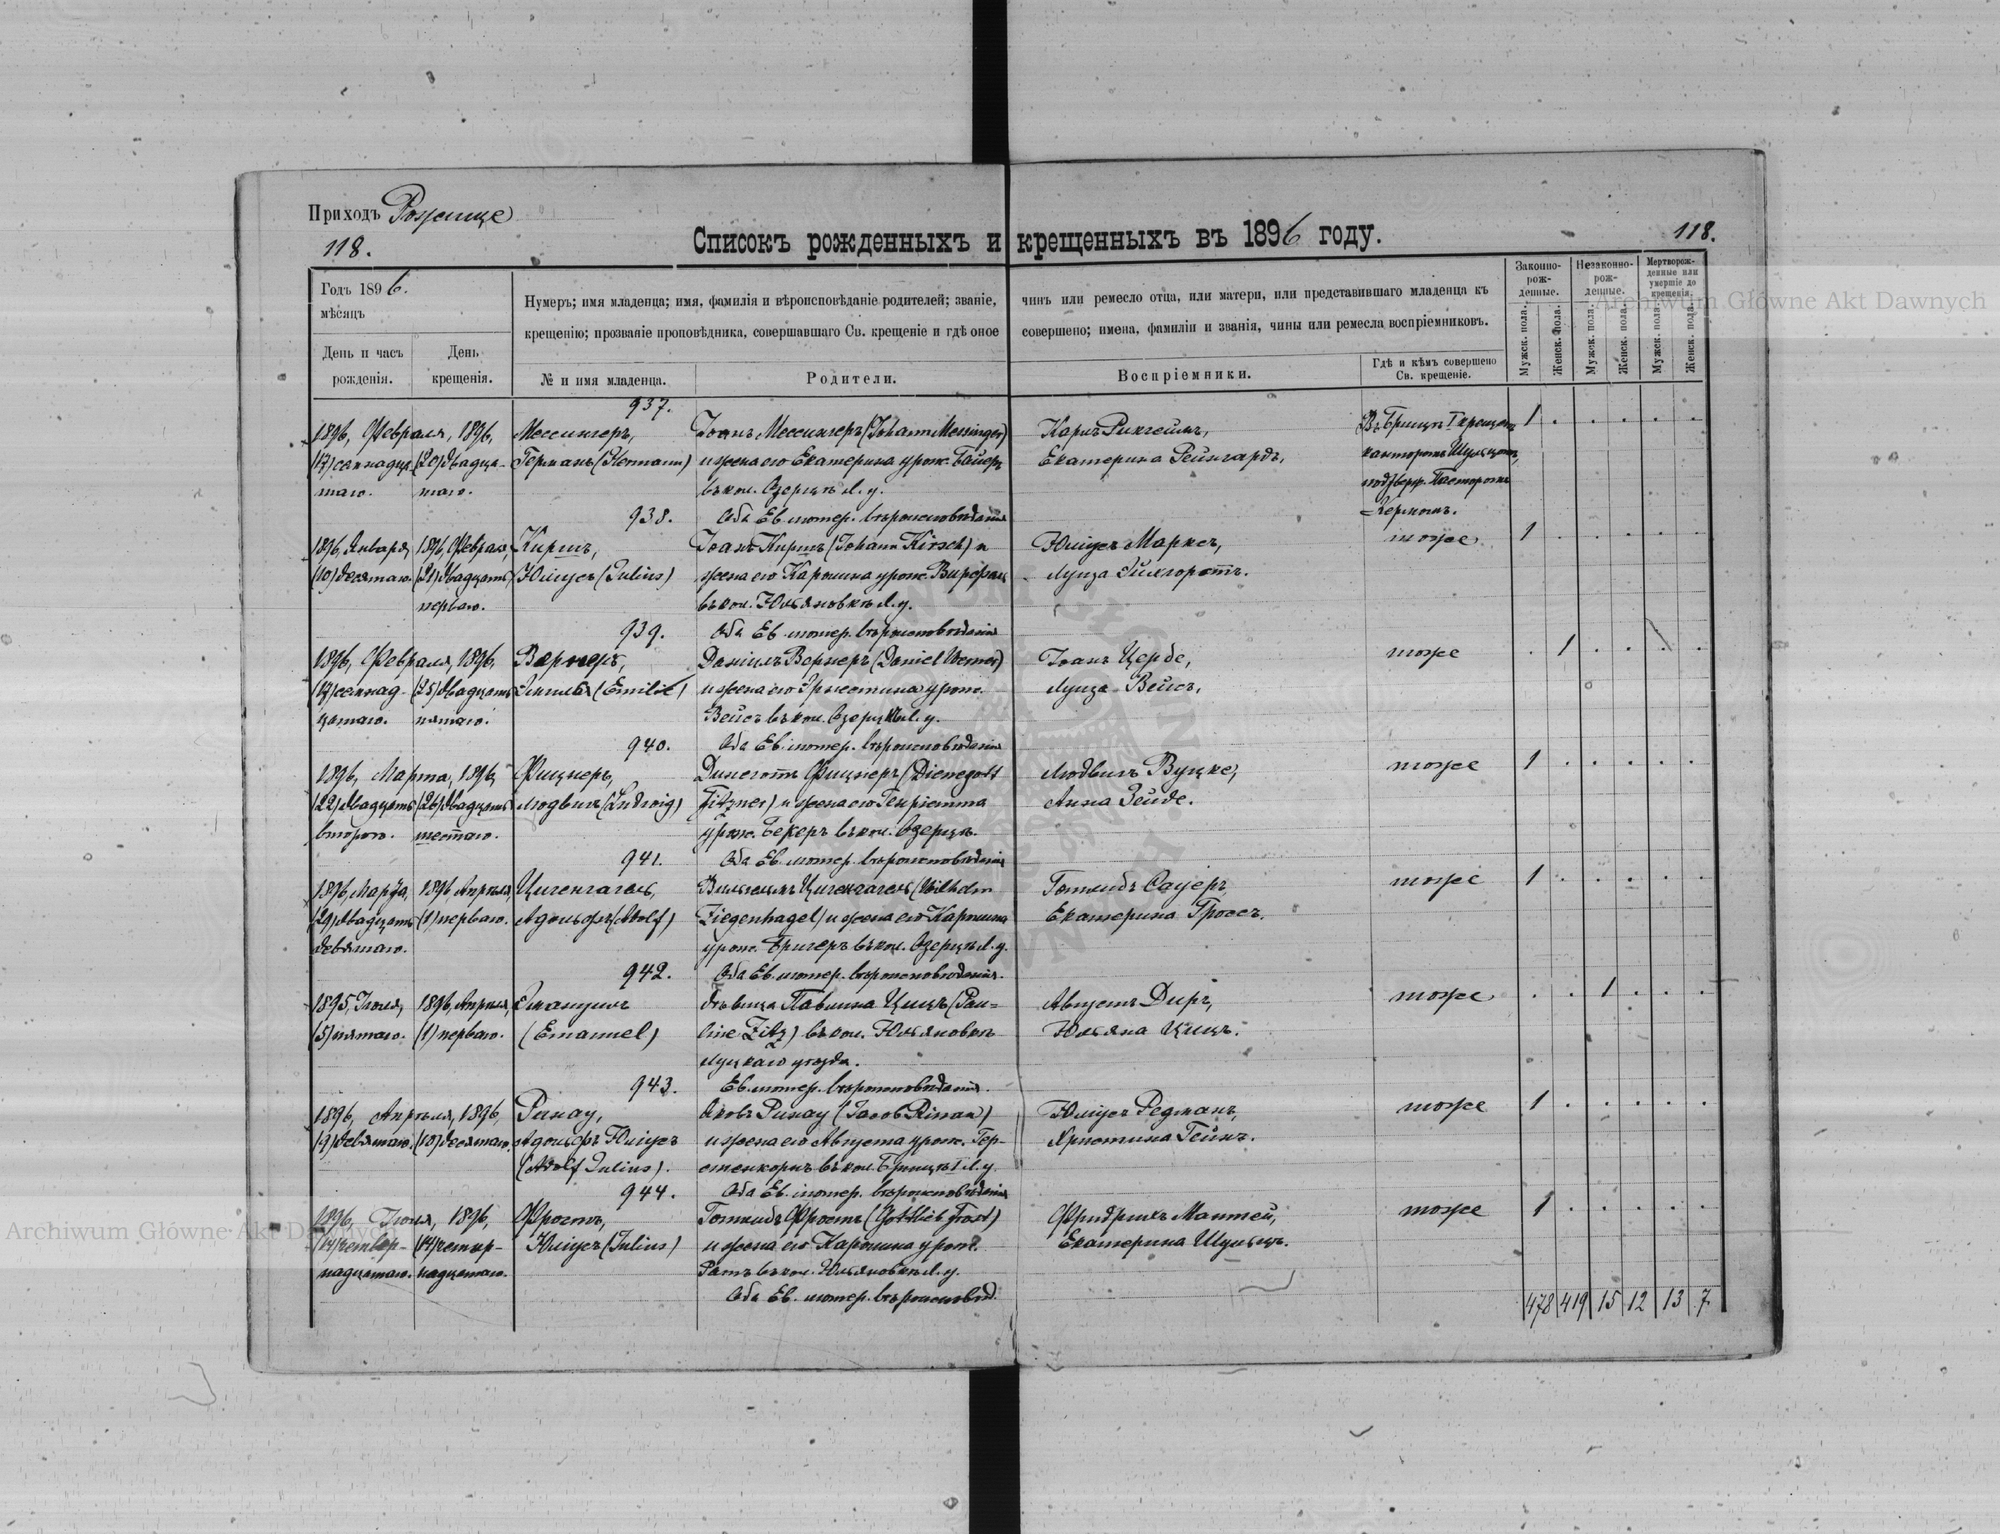 Приходъ Рожище
118.
Списокъ рожденныхъ и крещенныхъ въ 1896 году.
118.
Годъ 1896.
мѣсяцъ
День и часъ рожденія.
День крещенія.
Нумеръ; имя младенца; имя, фамилія и вѣроисповѣданіе родителей; званіе, чинъ или ремесло отца, или матери, или представившаго младенца къ
крещенію; прозваніе проповѣдника, совершавшаго Св. крещеніе и гдѣ оное совершено; имена, фамиліи и званія, чины или ремесла воспріемниковъ.
№ и имя младенца.
Родители.
Воспріемники.
Гдѣ и кѣмъ совершено Св. крещеніе.
Законно-рож-денные.
Незаконно-рож-денные.
Мертворож-денные или умершіе до крещенія.
Мужск. пола.
Женск. пола.
Мужск. пола.
Женск. пола.
Мужск. пола.
Женск. пола.
937.
1896, Февраля, 1896, Мессингеръ, Іоанъ Мессингеръ (Johann Messinger) Карлъ Рихгеймъ, 1
(17) семнадца- (20) двадца- Германъ (Hermann) и жена его Екатерина урож. Байеръ Екатерина Рейнгардъ, канторомъ Шульцомъ,
таго. таго. въ кол. Озерцѣ Л. у. подтверж. Пасторомъ
938. Оба Ев. лютер. вѣроисповѣданія Кермомъ.
1896, Января, 1896, Февраля Киршъ, Іоанъ Киршъ (Johann Kirsch) и Юліусъ Марксъ, тоже 1
(10) десятаго. (21) двадцать Юліусъ (Julius) жена его Каролина урож. Луиза Эйхгорстъ.
перваго. въ кол. Юльяновкѣ Л. у.
939. Оба Ев. лютер. вѣроисповѣданія
1896, Февраля, 1896, Вернеръ, Даніилъ Вернеръ (Daniel Werner) Іоанъ Цербе, тоже 1
(17) семнад- (25) двадцать Эмилія (Emilie) и жена его Эрнестина урож. Луиза Вейсъ,
цатаго. пятаго. Вейсъ въ кол. Озерцѣ Л. у.
940. Оба Ев. лютер. вѣроисповѣданія
1896, Марта, 1896, Фицнеръ, Динеготъ Фицнеръ (Dienegott Людвигъ Вуцке, тоже 1
(22) двадцать (26) двадцать Людвигъ (Ludwig) Fitzner) и жена его Генріетта Анна Зейде.
второго. шестаго. урож. Бекеръ въ кол. Озерцѣ.
941. Оба Ев. лютер. вѣроисповѣданія
1896, Марта, 1896, Апрѣля, Цигенгагель, Вильгельмъ Цигенгагель (Wilhelm Готлибъ Сауеръ, тоже 1
(29) двадцать (1) перваго. Адольфъ (Adolf) Ziegenhagel) и жена его Каролина Екатерина Гроссъ.
девятаго. урож. Бригеръ въ кол. Озерцѣ Л. у.
942. Оба Ев. лютер. вѣроисповѣданія.
1895, Іюля, 1896, Апрѣля, Эмануилъ дѣвица Павлина Цицъ (Pau- Августъ Диръ, тоже 1
(5) пятаго. (1) перваго. (Emanuel) line Zitz) въ кол. Юльяновкѣ Юльяна Цицъ.
Луцкаго уѣзда.
943. Ев. лютер. вѣроисповѣданія.
1896, Апрѣля, 1896, Ринау, Яковъ Ринау (Jacob Rinau) Юліусъ Редманъ, тоже 1
(9) девятаго. (10) десятаго. Адольфъ Юліусъ и жена его Августа урож. Гер- Христина Гейнъ.
(Adolf Julius). стенкорнъ въ кол. Л. у.
944. Оба Ев. лютер. вѣроисповѣданія
1896, Іюля, 1896, Фростъ, Готлибъ Фростъ (Gottlieb Frost) Фридрихъ Мантей, тоже 1
(14) четвер- (14) четыр- Юліусъ (Julius) и жена его Каролина урож. Екатерина Шульцъ.
надцатаго. надцатаго. Ратъ въ кол. Юльяновкѣ Л. у.
Оба Ев. лютер. вѣроисповѣд.
478 419 15 12 13 7
Archiwum Główne Akt Dawnych
Archiwum Główne Akt Dawnych